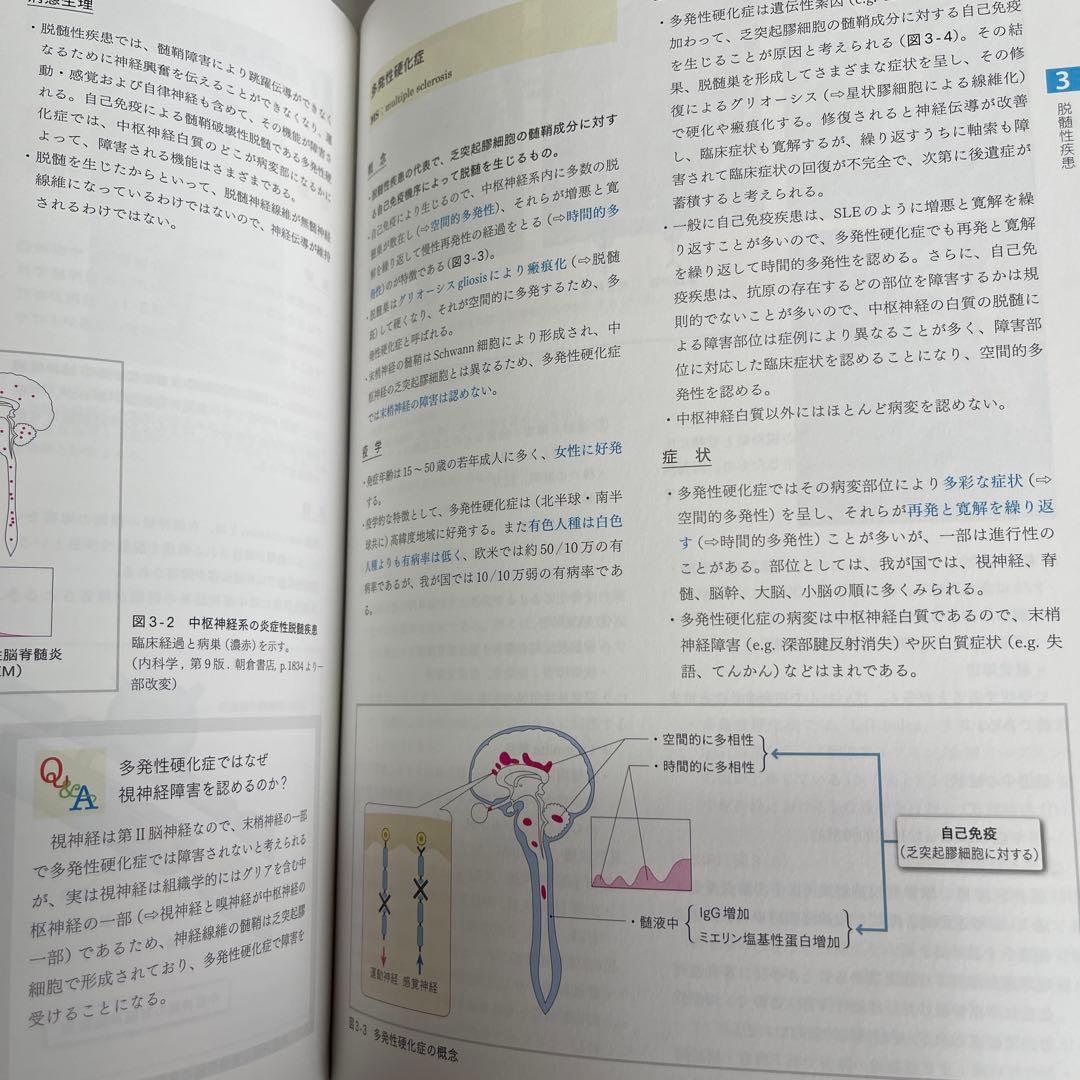 病態生理
・脱髄性疾患では、髄鞘障害により跳躍伝導ができなく
なるために神経興奮を伝えることができなくなり、運
動・感覚および自律神経も含めて、その機能が障害さ
れる。自己免疫による髄鞘破壊性脱髄である多発性硬
化症では、中枢神経白質のどこが病変部になるかに
よって、障害される機能はさまざまである。
・脱髄を生じたからといって、脱髄神経線維が無髄神経
線維になっているわけではないので、神経伝導が維持
されるわけではない。
性脳脊髄炎
EM)
図3-2 中枢神経系の炎症性脱髄疾患
臨床経過と病巣（濃赤）を示す。
（内科学, 第9版. 朝倉書店, p.1834より一
部改変）
Q&A
多発性硬化症ではなぜ
視神経障害を認めるのか?
視神経は第Ⅱ脳神経なので、末梢神経の一部
で多発性硬化症では障害されないと考えられる
が、実は視神経は組織学的にはグリアを含む中
枢神経の一部（⇨視神経と嗅神経が中枢神経の
一部）であるため、神経線維の髄鞘は乏突起膠
細胞で形成されており、多発性硬化症で障害を
受けることになる。
多発性硬化症
MS : multiple sclerosis
概 念
・脱髄性疾患の代表で、乏突起膠細胞の髄鞘成分に対す
る自己免疫機序によって脱髄を生じるもの。
・自己免疫により生じるので、中枢神経系内に多数の脱
髄巣が散在し（⇨空間的多発性）、それらが増悪と寛
解を繰り返して慢性再発性の経過をとる（⇨時間的多
発性）のが特徴である（図3-3）。
・脱髄巣はグリオーシスgliosisにより瘢痕化（⇨脱髄
斑）して硬くなり、それが空間的に多発するため、多
発性硬化症と呼ばれる。
・末梢神経の髄鞘はSchwann細胞により形成され、中
枢神経の乏突起膠細胞とは異なるため、多発性硬化症
では末梢神経の障害は認めない。
疫 学
・発症年齢は15〜50歳の若年成人に多く、女性に好発
する。
・疫学的な特徴として、多発性硬化症は（北半球・南半
球共に）高緯度地域に好発する。また有色人種は白色
人種よりも有病率は低く、欧米では約50/10万の有
病率であるが、我が国では10/10万弱の有病率であ
る。
・多発性硬化症は遺伝性素因（e.g.
加わって、乏突起膠細胞の髄鞘成分に対する自己免疫
を生じることが原因と考えられる（図3-4）。その結
果、脱髄巣を形成してさまざまな症状を呈し、その修
復によるグリオーシス（⇨星状膠細胞による線維化）
で硬化や瘢痕化する。修復されると神経伝導が改善
し、臨床症状も寛解するが、繰り返すうちに軸索も障
害されて臨床症状の回復が不完全で、次第に後遺症が
蓄積すると考えられる。
・一般に自己免疫疾患は、SLEのように増悪と寛解を繰
り返すことが多いので、多発性硬化症でも再発と寛解
を繰り返して時間的多発性を認める。さらに、自己免
疫疾患は、抗原の存在するどの部位を障害するかは規
則的でないことが多いので、中枢神経の白質の脱髄に
よる障害部位は症例により異なることが多く、障害部
位に対応した臨床症状を認めることになり、空間的多
発性を認める。
・中枢神経白質以外にはほとんど病変を認めない。
症 状
・多発性硬化症ではその病変部位により多彩な症状（⇨
空間的多発性）を呈し、それらが再発と寛解を繰り返
す（⇨時間的多発性）ことが多いが、一部は進行性の
ことがある。部位としては、我が国では、視神経、脊
髄、脳幹、大脳、小脳の順に多くみられる。
・多発性硬化症の病変は中枢神経白質であるので、末梢
神経障害（e.g. 深部腱反射消失）や灰白質症状（e.g. 失
語、てんかん）などはまれである。
3
脱髄性疾患
・空間的に多相性
・時間的に多相性
自己免疫
（乏突起膠細胞に対する）
・髄液中
IgG増加
ミエリン塩基性蛋白増加
運動神経 感覚神経
図3-3 多発性硬化症の概念